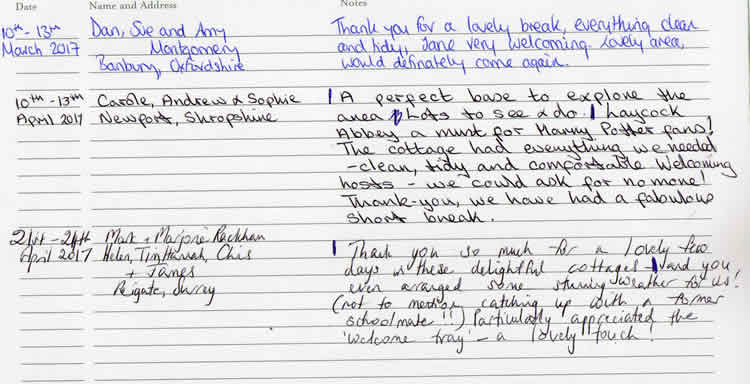 Date Name and Address Notes
10th - 13th Dan, Sue and Amy Thank you for a lovely break, everything clean
March 2017 Montgomery and tidy, Jane very welcoming. Lovely area,
Banbury, Oxfordshire would definately come again.
10th - 13th Carole, Andrew & Sophie A perfect base to explore the
April 2017 Newport, Shropshire area lots to see & do. Laycock
Abbey a must for Harry Potter fans!
The cottage had everything we needed
- clean, tidy and comfortable. Welcoming
hosts - we could ask for no more!
Thank-you, we have had a fabulous
short break.
21st - 24th Mark + Marjorie Rackham
April 2017 Helen, Tim, Hannah, Chris Thank you so much for a lovely few
+ James days in these delightful cottages and you,
Reigate, Surrey even arranged some stunning weather for us!
(not to mention catching up with a former
schoolmate!!!) Particularly appreciated the
'welcome tray' - a lovely touch!